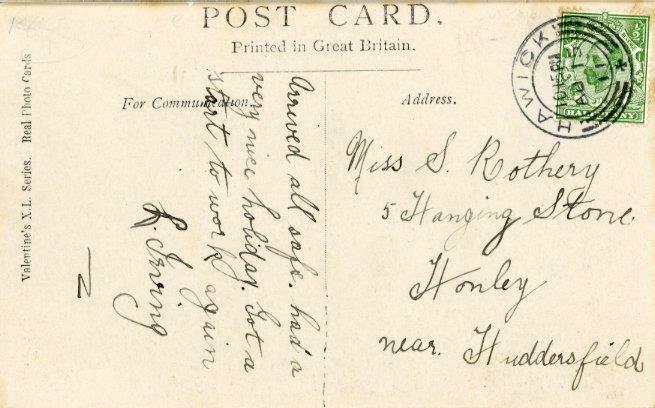 POST CARD.
Printed in Great Britain.
For Communication.
Address.
Valentine's X.L. Series. Real Photo Cards
Arrived all safe. had a
very nice holiday. Got a
start to work again
L. Irving
Miss S. Rothery
5 Hanging Stone
Honley
near. Huddersfield
HAWICK